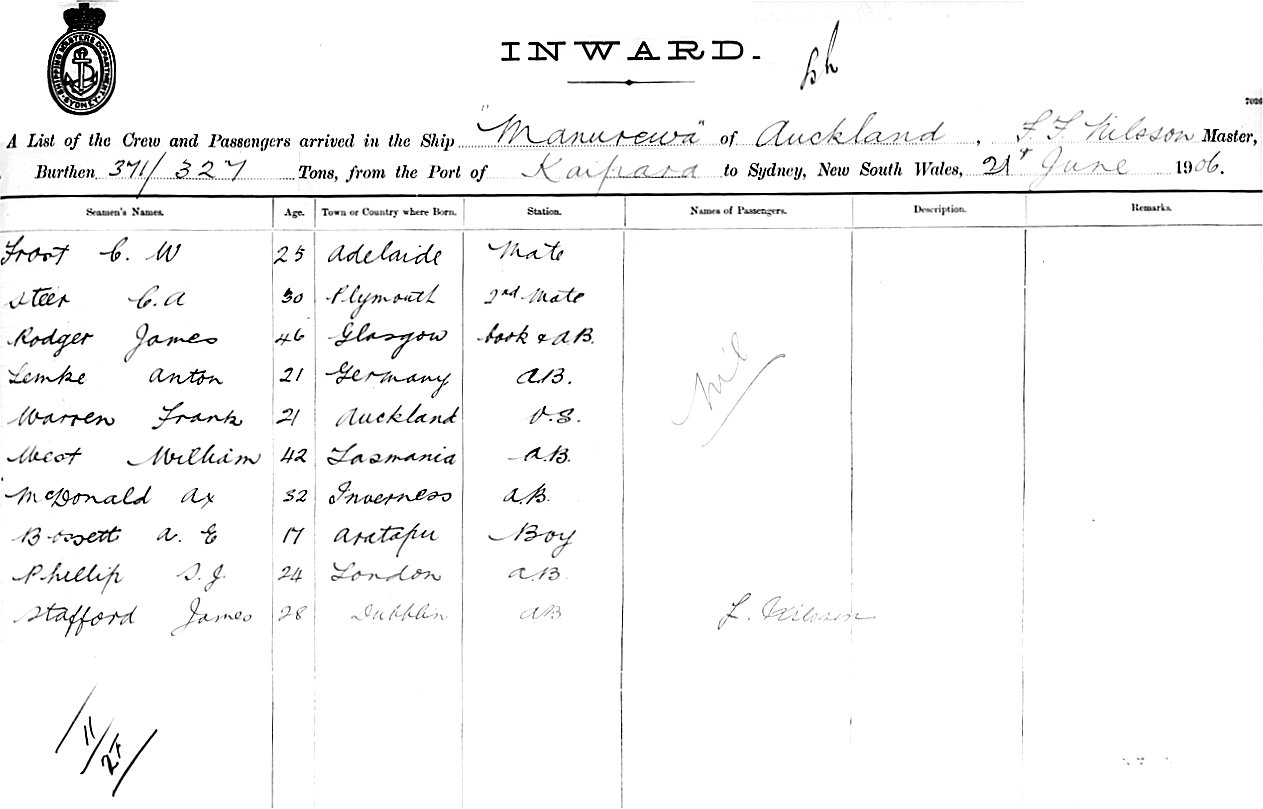 SHIPPING MASTERS DEPARTMENT SYDNEY
INWARD.
7026
A List of the Crew and Passengers arrived in the Ship "Manurewa" of Auckland, F. F. Nilsson Master,
Burthen 371/327 Tons, from the Port of Kaipara to Sydney, New South Wales, 21st June 1906.
Seamen's Names. Age. Town or Country where Born. Station. Names of Passengers. Description. Remarks.
Froot C. W 25 Adelaide Mate
Steer C. A 30 Plymouth 2nd Mate
Rodger James 46 Glasgow Cook & A.B.
Lemke Anton 21 Germany A.B.
Nil
Warren Frank 21 Auckland O.S.
West William 42 Tasmania A.B.
McDonald Ax 32 Inverness A.B.
Bossett A. E 17 Aratapu Boy
Phillip S. J. 24 London A.B.
Stafford James 28 Dubblin AB F. Nilsson
11/27